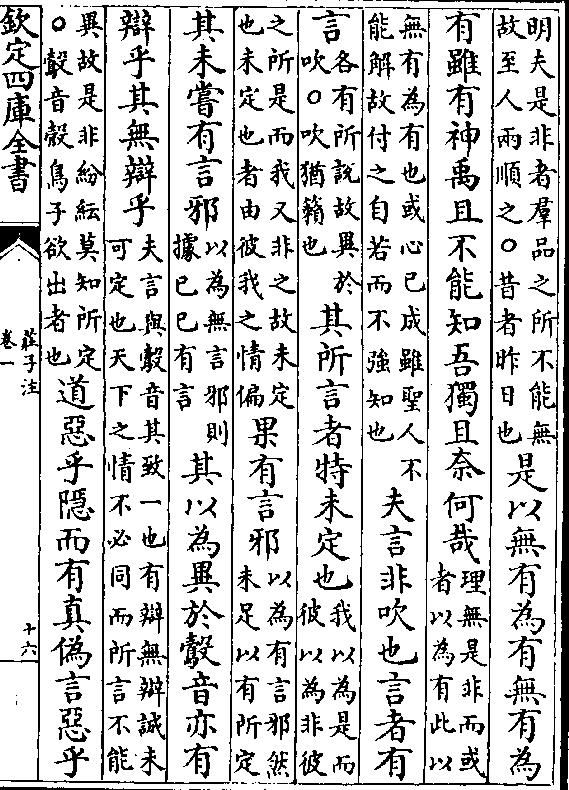 明夫是非者羣品之所不能無
故至人兩順之○昔者昨日也
是以無有為有無有為
有雖有神禹且不能知吾獨且奈何哉
理無是非而或
者以為有此以
無有為有也或心已成雖聖人不
能解故付之自若而不強知也
夫言非吹也言者有
言
各有所說故異於
吹○吹猶籟也
其所言者特未定也
我以為是而
彼以為非彼
之所是而我又非之故未定
也未定也者由彼我之情偏
果有言邪
以為有言邪然
未足以有所定
其未嘗有言邪
以為無言邪則
據已已有言
其以為異於鷇音亦有
辯乎其無辯乎
夫言與鷇音其致一也有辯無辯誠未
可定也天下之情不必同而所言不能
異故是非紛紜莫知所定
○鷇音殻鳥子欲出者也
道惡乎隱而有真偽言惡乎
欽定四庫全書
莊子注
卷一
十六